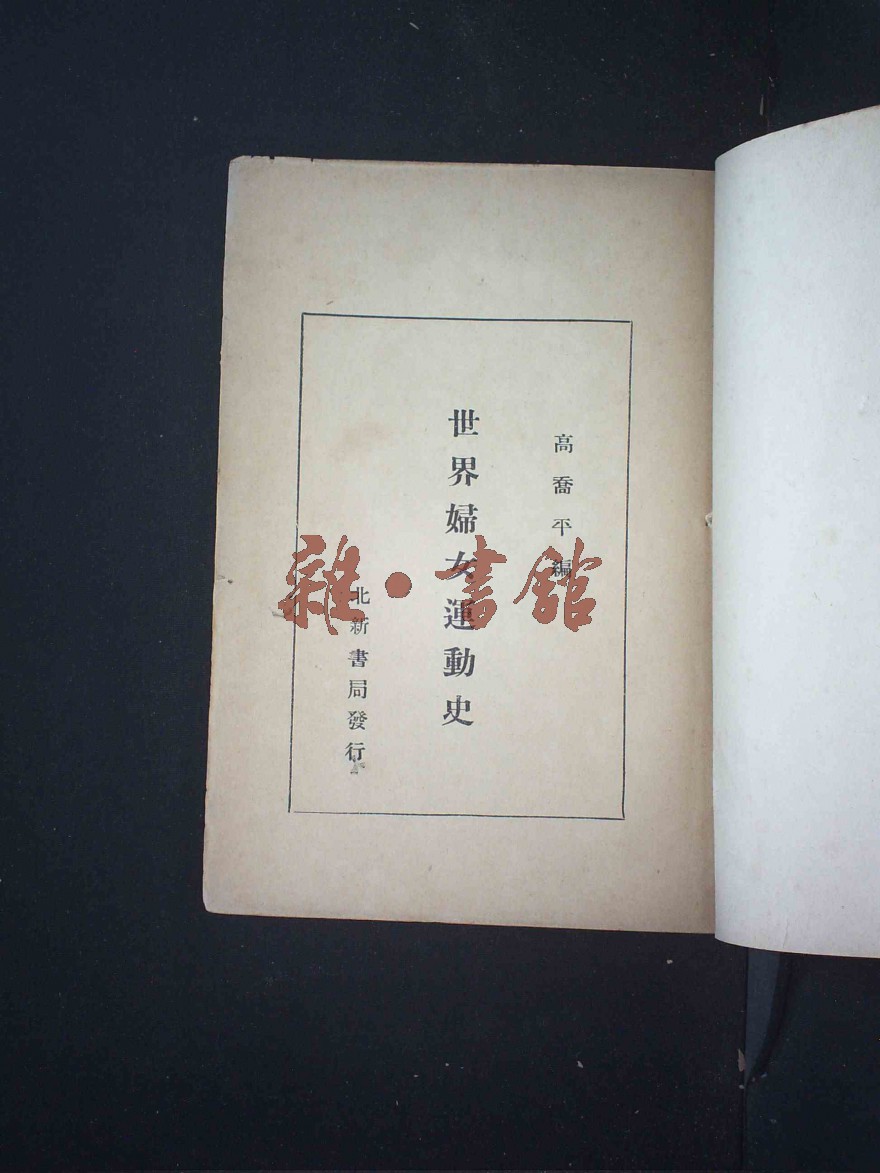 高喬平編
世界婦女運動史
北新書局發行
雜·書館